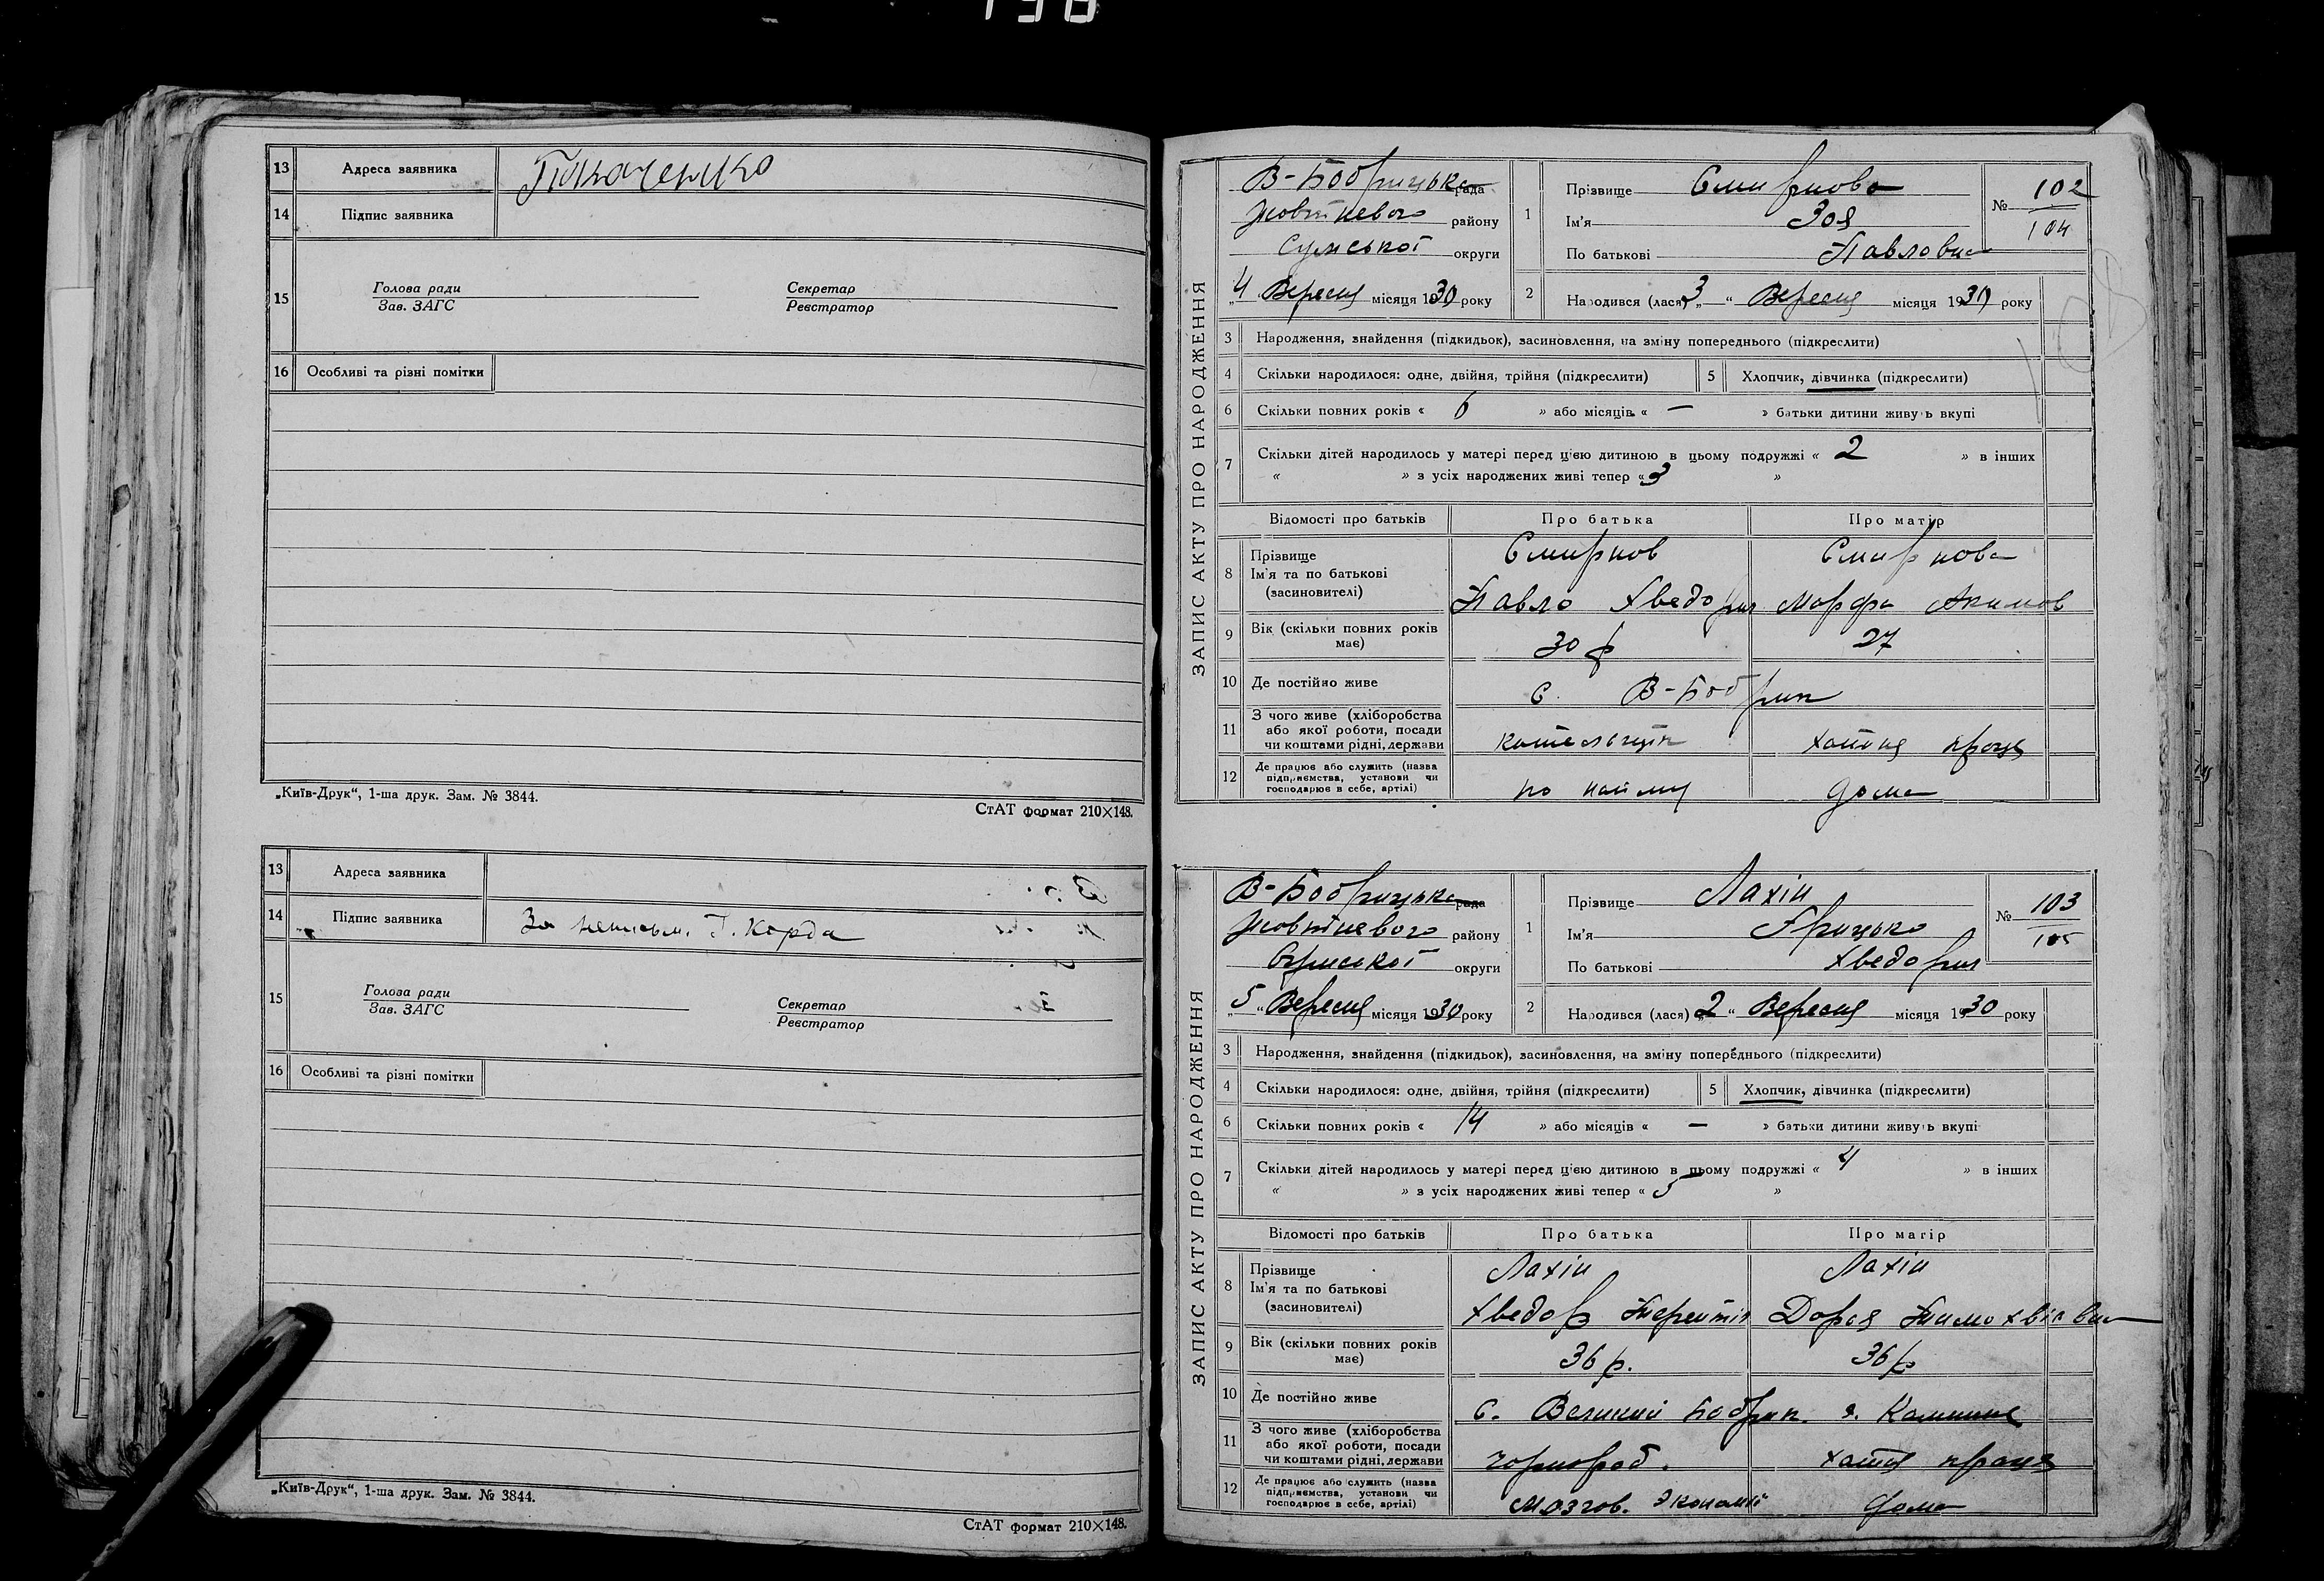 13 Адреса заявника Ткаченко
14 Підпис заявника
15 Голова ради Секретар
Зав. ЗАГС Реєстратор
16 Особливі та різні помітки
„Київ-Друк“, 1-ша друк. Зам. № 3844.
СтАТ формат 210×148.
13 Адреса заявника
14 Підпис заявника За неписьм. Г. Корда
15 Голова ради Секретар
Зав. ЗАГС Реєстратор
16 Особливі та різні помітки
„Київ-Друк“, 1-ша друк. Зам. № 3844.
СтАТ формат 210×148.
ЗАПИС АКТУ ПРО НАРОДЖЕННЯ
В-Бобрицька рада
Жовтневого району
Сумської округи
„4“ Вересня місяця 1930 року
1 Прізвище Смирнова
Ім'я Зоя
По батькові Павловна
№ 102
104
2 Народився (лася) „3“ Вересня місяця 1930 року
3 Народження, знайдення (підкидьок), засиновлення, на зміну попереднього (підкреслити)
4 Скільки народилося: одне, двійня, трійня (підкреслити) 5 Хлопчик, дівчинка (підкреслити)
6 Скільки повних років « 6 » або місяців « — » батьки дитини живуть вкупі
7 Скільки дітей народилось у матері перед цією дитиною в цьому подружжі « 2 » в інших
« » з усіх народжених живі тепер « 3 »
Відомості про батьків Про батька Про матір
8 Прізвище Смирнов Смирнова
Ім'я та по батькові
(засиновителі) Павло Хведорич Марфа Акимов
9 Вік (скільки повних років має) 30 р 27
10 Де постійно живе с. В-Бобрик
11 З чого живе (хліборобства
або якої роботи, посади
чи коштами рідні, держави хатня праця
12 Де працює або служить (назва
підприємства, установи чи
господарює в себе, артілі) по найму дома
ЗАПИС АКТУ ПРО НАРОДЖЕННЯ
В-Бобрицька рада
Жовтневого району
Сумської округи
„5“ Вересня місяця 1930 року
1 Прізвище Лахін
Ім'я Грицько
По батькові Хведорич
№ 103
105
2 Народився (лася) „2“ Вересня місяця 1930 року
3 Народження, знайдення (підкидьок), засиновлення, на зміну попереднього (підкреслити)
4 Скільки народилося: одне, двійня, трійня (підкреслити) 5 Хлопчик, дівчинка (підкреслити)
6 Скільки повних років « 14 » або місяців « — » батьки дитини живуть вкупі
7 Скільки дітей народилось у матері перед цією дитиною в цьому подружжі « 4 » в інших
« » з усіх народжених живі тепер « 5 »
Відомості про батьків Про батька Про матір
8 Прізвище Лахін Лахін
Ім'я та по батькові
(засиновителі) Хведор Терентія Дарья Тимохвіївна
9 Вік (скільки повних років має) 36 р. 36 р
10 Де постійно живе с. Великий Бобрик.
11 З чого живе (хліборобства
або якої роботи, посади
чи коштами рідні, держави чорнороб. хатня праця
12 Де працює або служить (назва
підприємства, установи чи
господарює в себе, артілі) Мозгов. Экономії дома